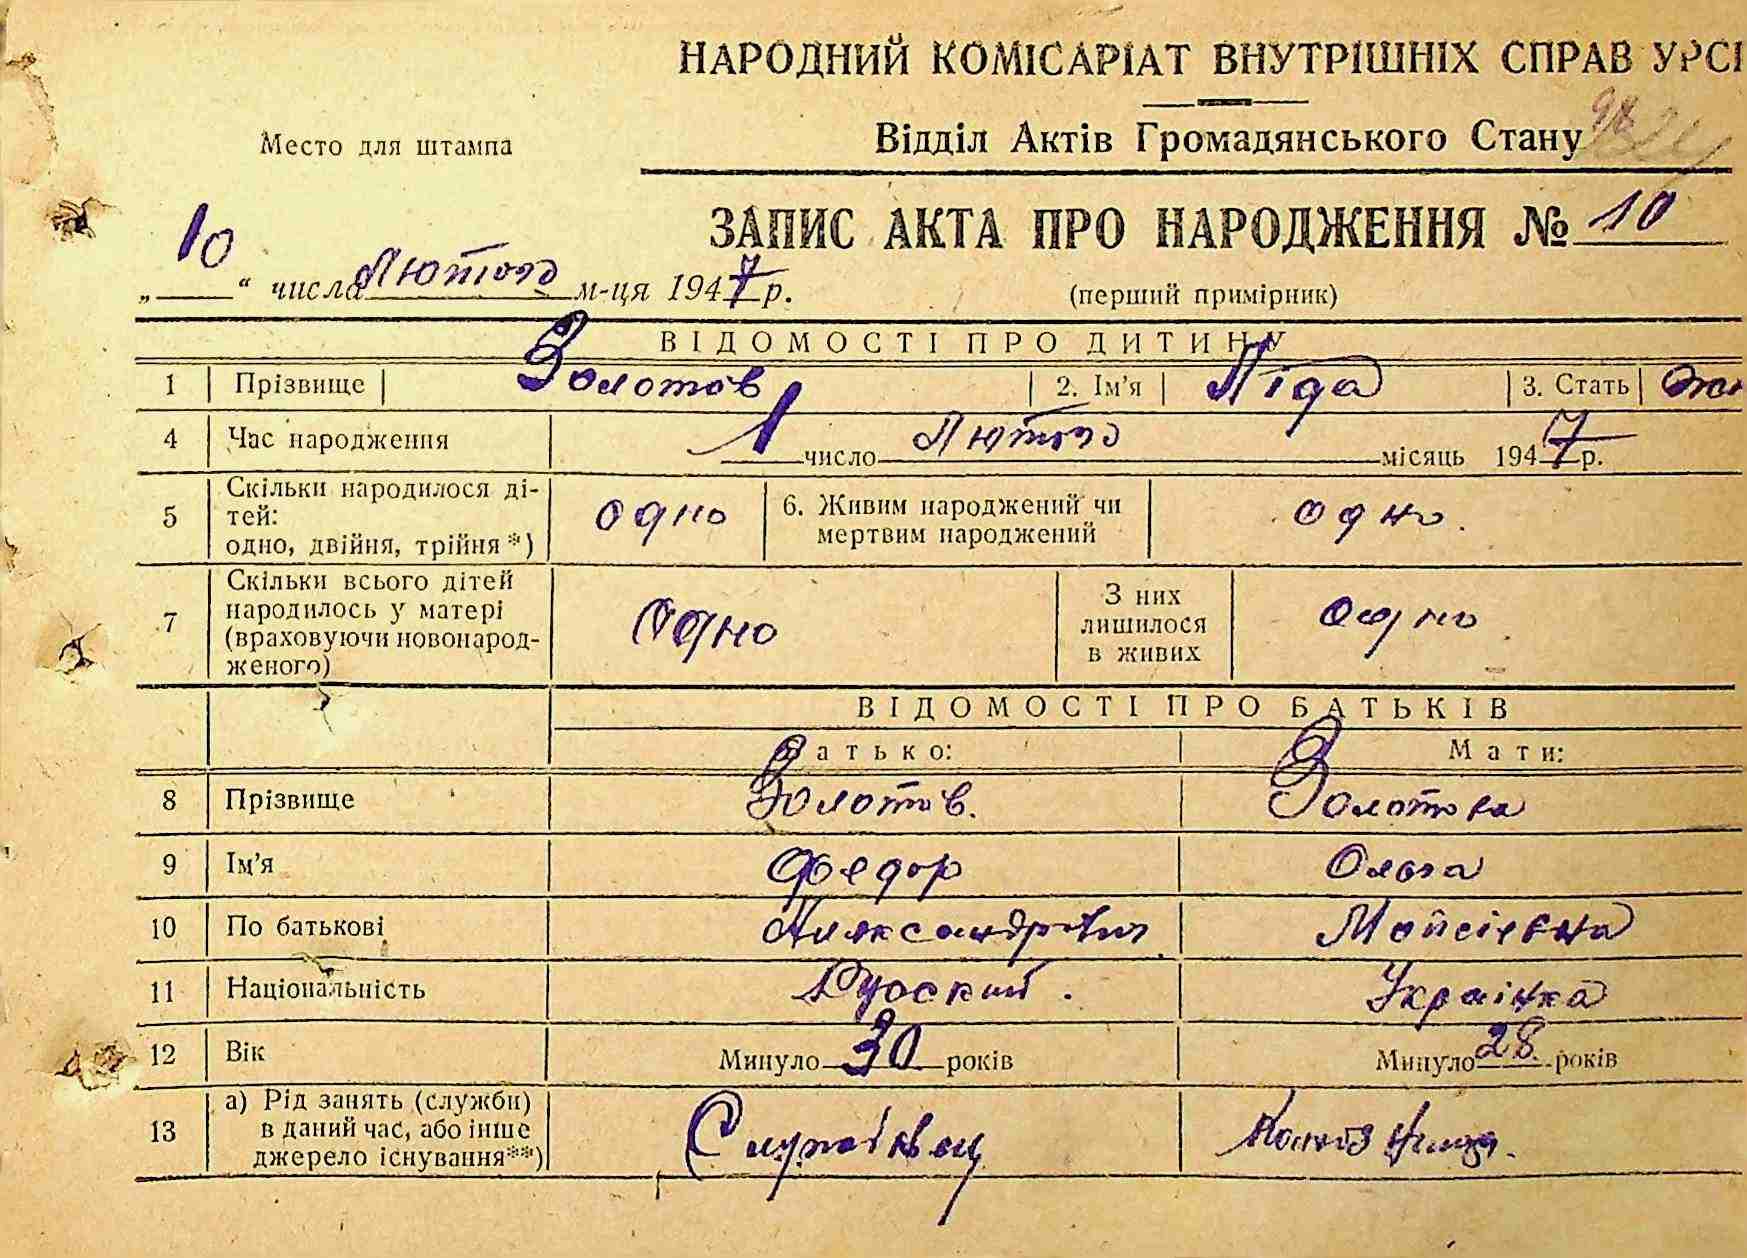 НАРОДНИЙ КОМІСАРІАТ ВНУТРІШНІХ СПРАВ УРСР
Место для штампа
Відділ Актів Громадянського Стану
ЗАПИС АКТА ПРО НАРОДЖЕННЯ № 10
„10“ числа Лютого м-ця 1947 р.
(перший примірник)
ВІДОМОСТІ ПРО ДИТИНУ
1 Прізвище Золотов 2. Ім'я Ліда 3. Стать жі
4 Час народження 1 число Лютого місяць 1947 р.
5 Скільки народилося ді-
тей:
одно, двійня, трійня*) одно 6. Живим народжений чи
мертвим народжений одно.
7 Скільки всього дітей
народилось у матері
(враховуючи новонарод-
женого) Одно З них
лишилося
в живих одно
ВІДОМОСТІ ПРО БАТЬКІВ
Батько: Мати:
8 Прізвище Золотов. Золотова
9 Ім'я Федор Ольга
10 По батькові Александрович Мойсієвна
11 Національність Руский. Українка
12 Вік Минуло 30 років Минуло 28 років
13 а) Рід занять (служби)
в даний час, або інше
джерело існування**) Колхозниця.